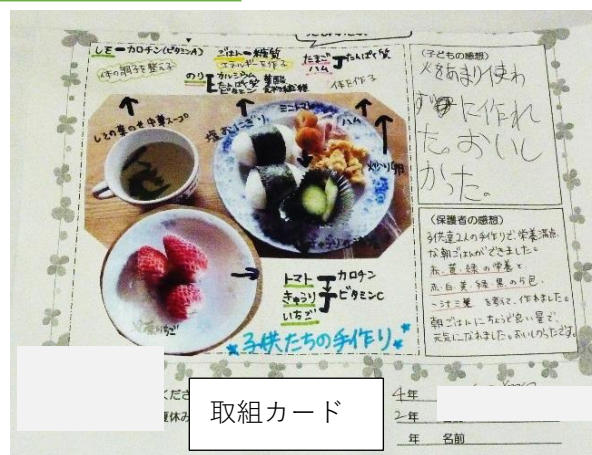 しそーカロチン(ビタミンA)
体の調子を整える
ごはんー糖質
エネルギーを作る
のり
カルシウム
たんぱく質
ビタミン
たまご
ハム
たんぱく質
体を作る
しその葉のせ中華スープ
塩おにぎり
ミニトマト
ハム
炒り卵
トマト
きゅうり
いちご
カロチン
ビタミンC
★子供たちの手作り★
(子どもの感想)
火をあまり使わ
ずに作れ
た。おいし
かった。
(保護者の感想)
子供達2人の手作りで、栄養満点
な朝ごはんができました。
赤、黄、緑の栄養と
赤、白、黄、緑、黒の5色、
一汁三菜を考えて、作れました。
朝ごはんにちょうど良い量で、
元気になれました。おいしかったです。
取組カード
4年
2年
年 名前